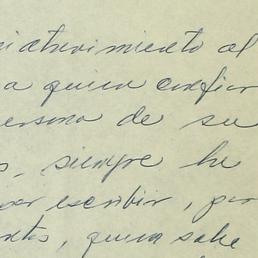 atrevimiento al
a quien confiar
persona de su
siempre he
por escribir, por
quien sabe